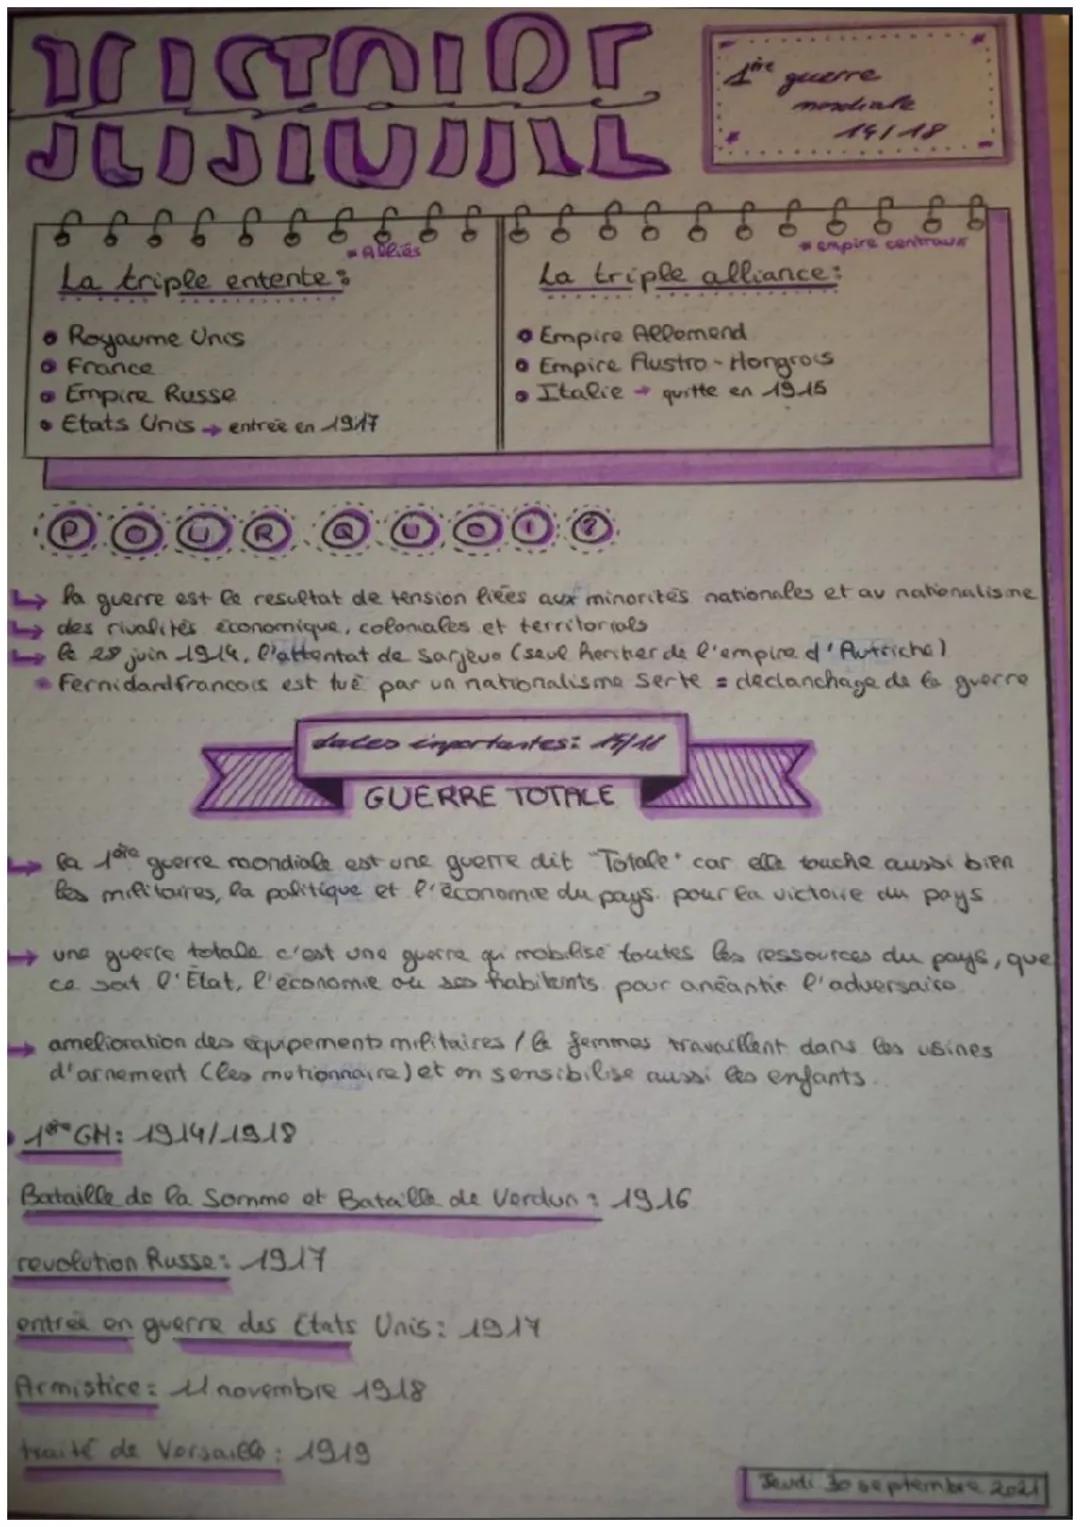 HISTOIRE
1ère guerre
mondiale
14/18
* Alliés
La triple entente :
• Royaume Unis
• France
• Empire Russe
• Etats Unis → entrée en 1917
* empire centraux
La triple alliance :
• Empire Allemend
• Empire Austro-Hongrois
• Italie → quitte en 1915
POURQUOI?
↳ la guerre est le resultat de tension liées aux minorités nationales et au nationalisme
↳ des rivalités économique, coloniales et territorials
↳ le 28 juin 1914, l'attentat de Sarjevo (seul heritier de l'empire d'Autriche)
• Fernidand francois est tué par un nationalisme Serte = declanchage de la guerre
dates importantes : 14/18
GUERRE TOTALE
→ la 1ère guerre mondiale est une guerre dit "Totale" car elle touche aussi bien
les militaires, la politique et l'économie du pays. pour la victoire du pays
→ une guerre totale c'est une guerre qui mobilise toutes les ressources du pays, que
ce soit l'État, l'économie ou ses habitants pour anéantir l'adversaire.
→ amelioration des équipements militaires / le femmes travaillent dans les usines
d'armement (les motionnaire) et on sensibilise aussi les enfants.
• 1ère GM : 1914/1918
Bataille de la Somme et Bataille de Verdun : 1916
revolution Russe : 1917
entrée en guerre des Etats Unis : 1917
Armistice : 11 novembre 1918
traité de Versaille : 1919
Jeudi 30 septembre 2021